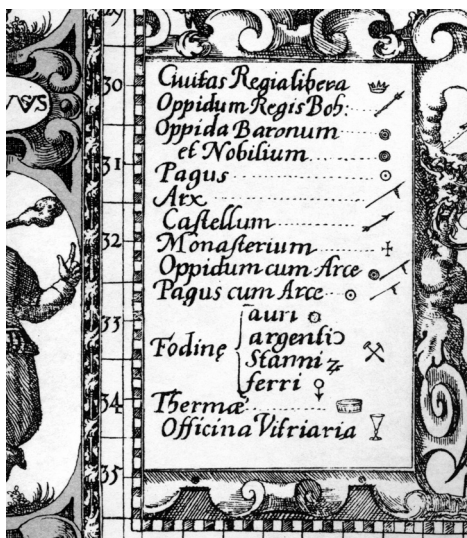 29
30
31
32
33
34
35
VVS
Civitas Regia libera
Oppidum Regis Boh:
Oppida Baronum
et Nobilium
Pagus
Arx
Castellum
Monasterium
Oppidum cum Arce
Pagus cum Arce
Fodinę
auri
argenti
stanni
ferri
Thermæ
Officina Vitriaria